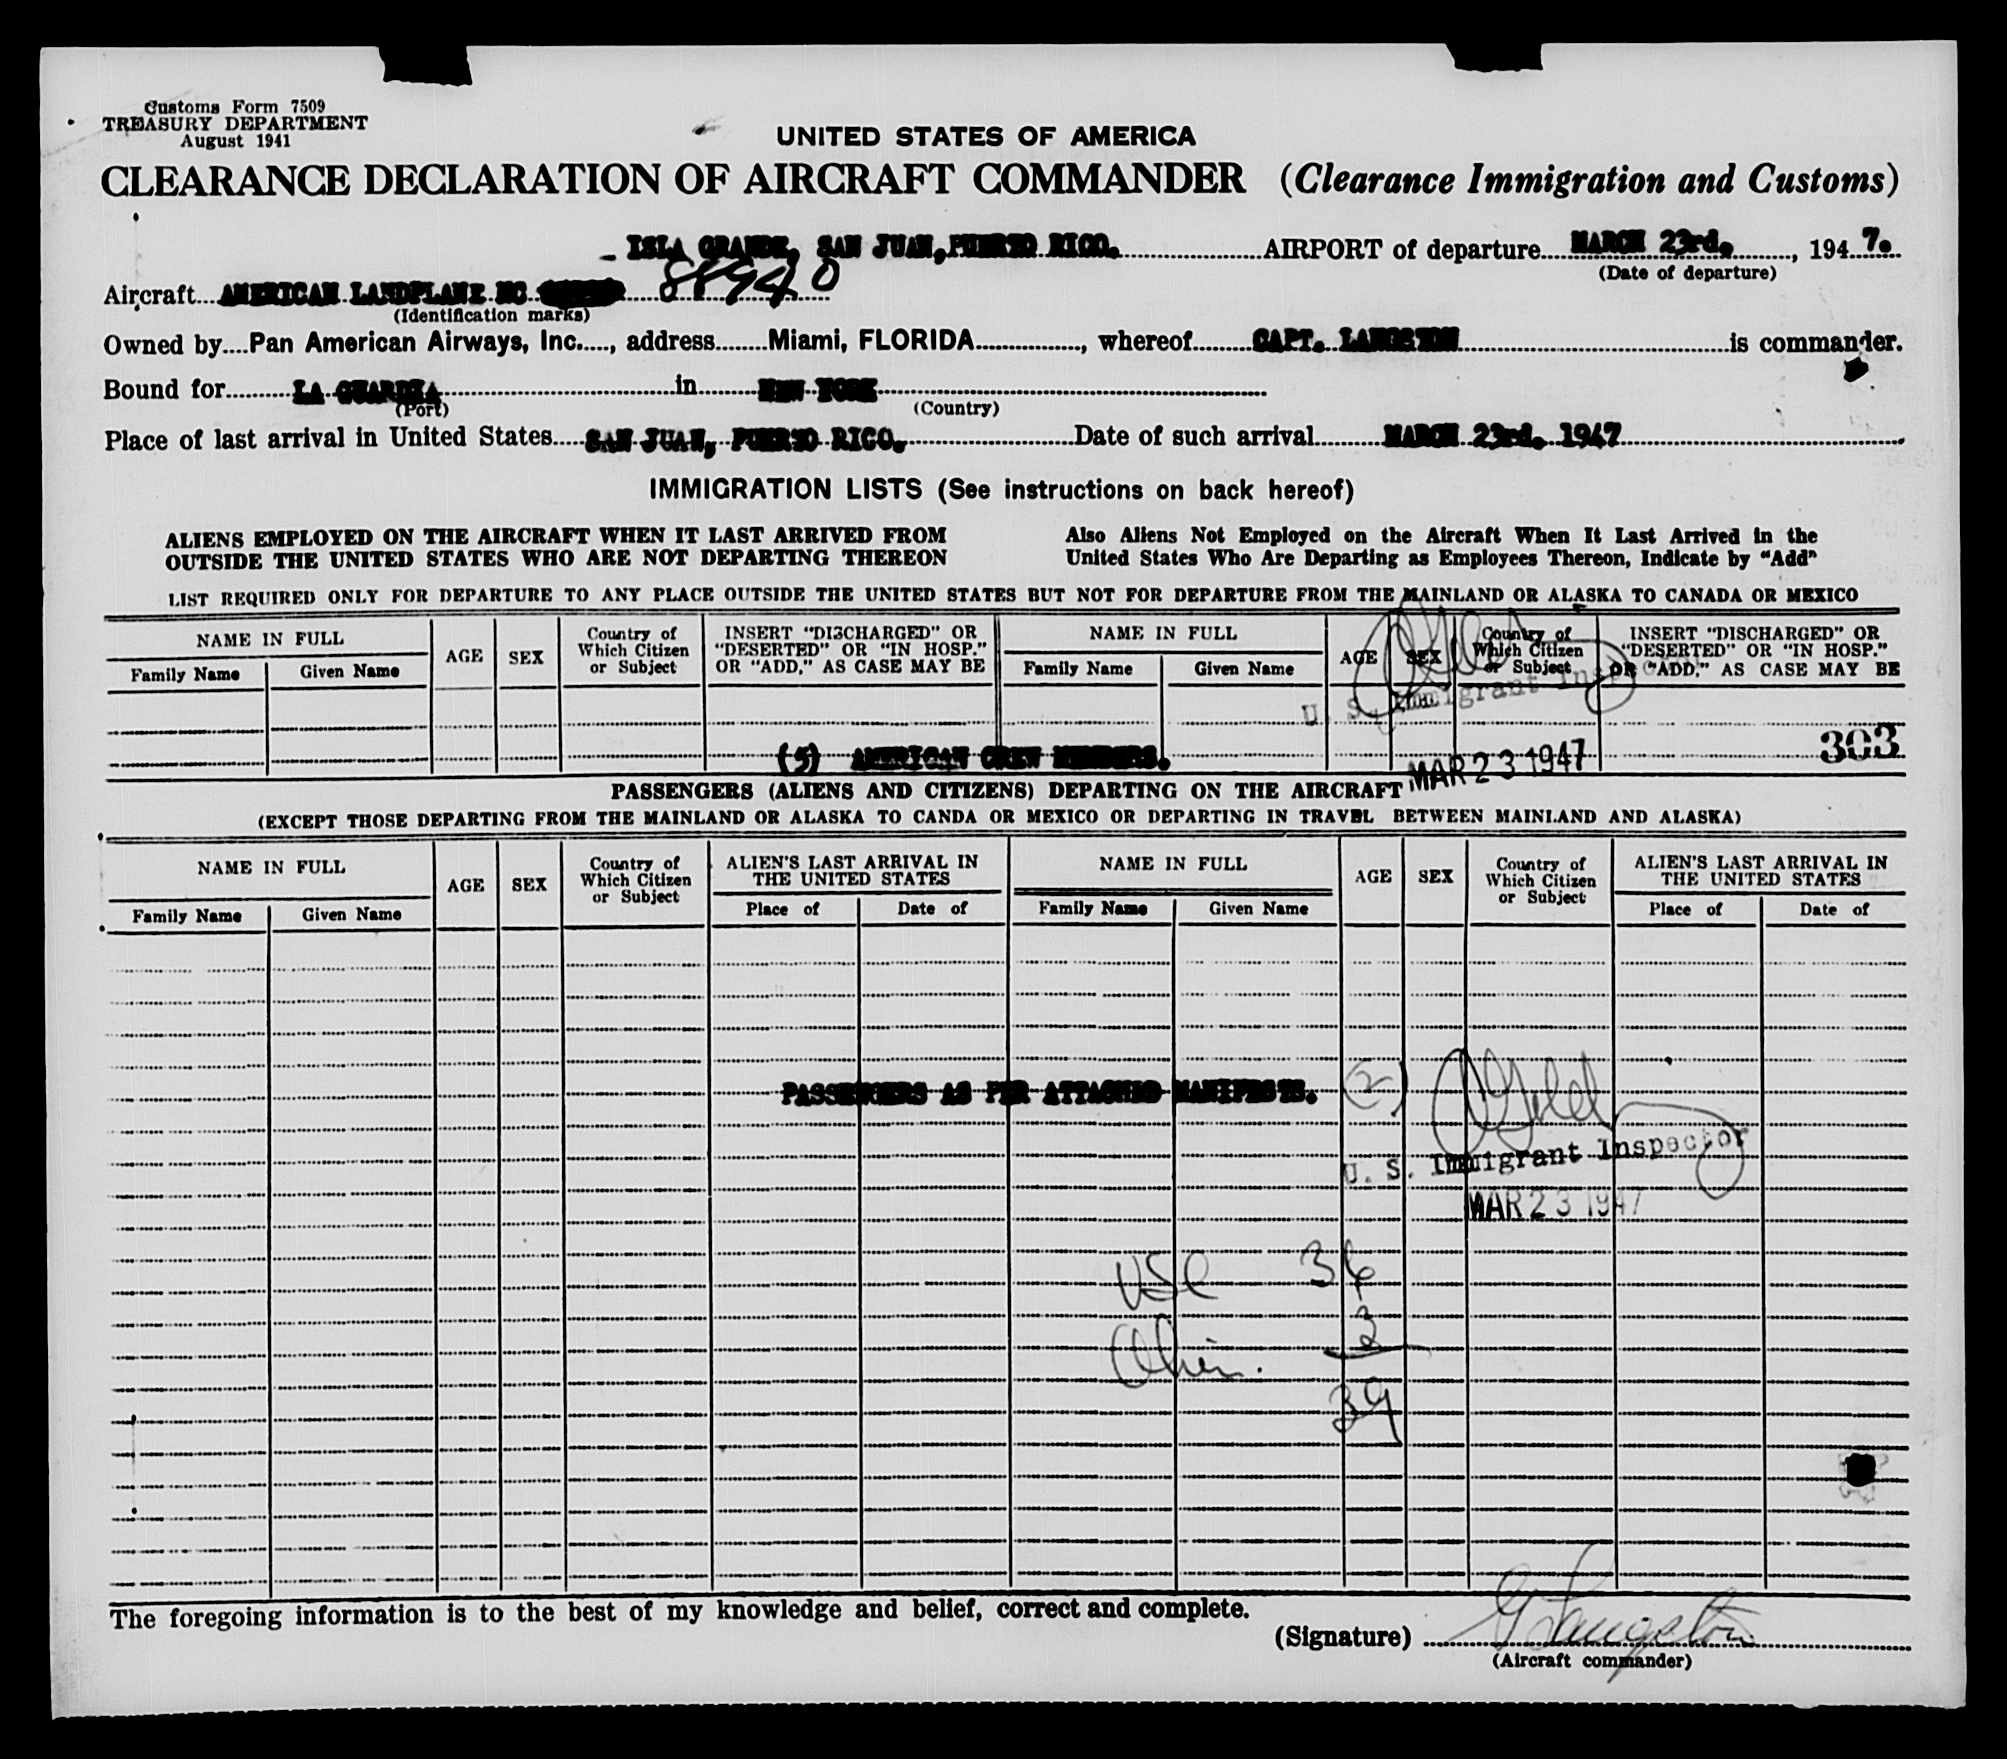 Customs Form 7509
TREASURY DEPARTMENT
August 1941
UNITED STATES OF AMERICA
CLEARANCE DECLARATION OF AIRCRAFT COMMANDER (Clearance Immigration and Customs)
ISLA GRANDE, SAN JUAN, PUERTO RICO. AIRPORT of departure MARCH 23rd., 1947.
(Date of departure)
Aircraft AMERICAN LANDPLANE NC 88940
(Identification marks)
Owned by Pan American Airways, Inc., address Miami, FLORIDA, whereof CAPT. LANGSTON is commander.
Bound for LA GUARDIA in NEW YORK
(Port) (Country)
Place of last arrival in United States SAN JUAN, PUERTO RICO. Date of such arrival MARCH 23rd. 1947
IMMIGRATION LISTS (See instructions on back hereof)
ALIENS EMPLOYED ON THE AIRCRAFT WHEN IT LAST ARRIVED FROM
OUTSIDE THE UNITED STATES WHO ARE NOT DEPARTING THEREON
Also Aliens Not Employed on the Aircraft When It Last Arrived in the
United States Who Are Departing as Employees Thereon, Indicate by "Add"
LIST REQUIRED ONLY FOR DEPARTURE TO ANY PLACE OUTSIDE THE UNITED STATES BUT NOT FOR DEPARTURE FROM THE MAINLAND OR ALASKA TO CANADA OR MEXICO
NAME IN FULL
Family Name Given Name
AGE
SEX
Country of
Which Citizen
or Subject
INSERT "DISCHARGED" OR
"DESERTED" OR "IN HOSP."
OR "ADD," AS CASE MAY BE
NAME IN FULL
Family Name Given Name
AGE
SEX
Country of
Which Citizen
or Subject
INSERT "DISCHARGED" OR
"DESERTED" OR "IN HOSP."
OR "ADD," AS CASE MAY BE
U. S. Immigrant Inspec
303
(5) AMERICAN CREW MEMBERS.
MAR 23 1947
PASSENGERS (ALIENS AND CITIZENS) DEPARTING ON THE AIRCRAFT
(EXCEPT THOSE DEPARTING FROM THE MAINLAND OR ALASKA TO CANDA OR MEXICO OR DEPARTING IN TRAVEL BETWEEN MAINLAND AND ALASKA)
NAME IN FULL
Family Name Given Name
AGE
SEX
Country of
Which Citizen
or Subject
ALIEN'S LAST ARRIVAL IN
THE UNITED STATES
Place of Date of
NAME IN FULL
Family Name Given Name
AGE
SEX
Country of
Which Citizen
or Subject
ALIEN'S LAST ARRIVAL IN
THE UNITED STATES
Place of Date of
PASSENGERS AS PER ATTACHED MANIFESTS. (2)
U. S. Immigrant Inspector
MAR 23 1947
USC 36
Alien. 3
39
The foregoing information is to the best of my knowledge and belief, correct and complete.
(Signature) G Langston
(Aircraft commander)